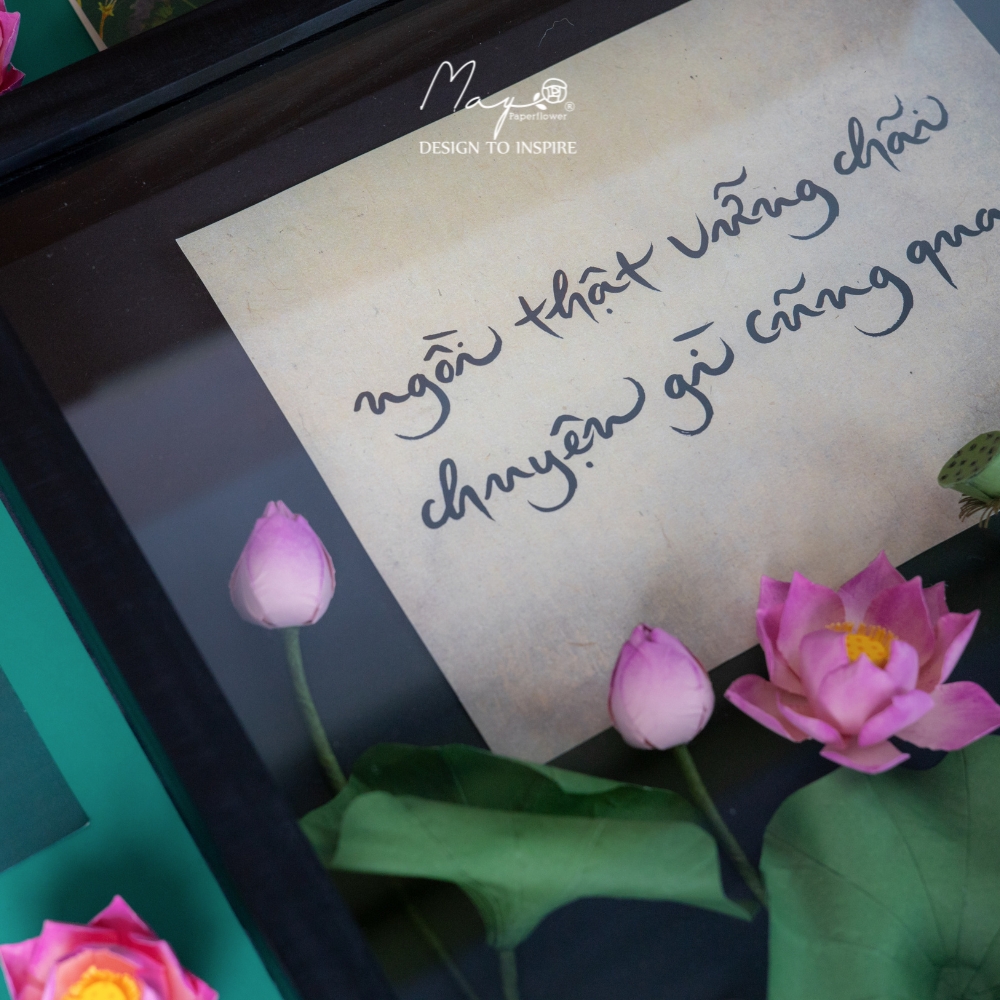 May
Paperflower
®
DESIGN TO INSPIRE
ngồi thật vững chãi
chuyện gì cũng qua